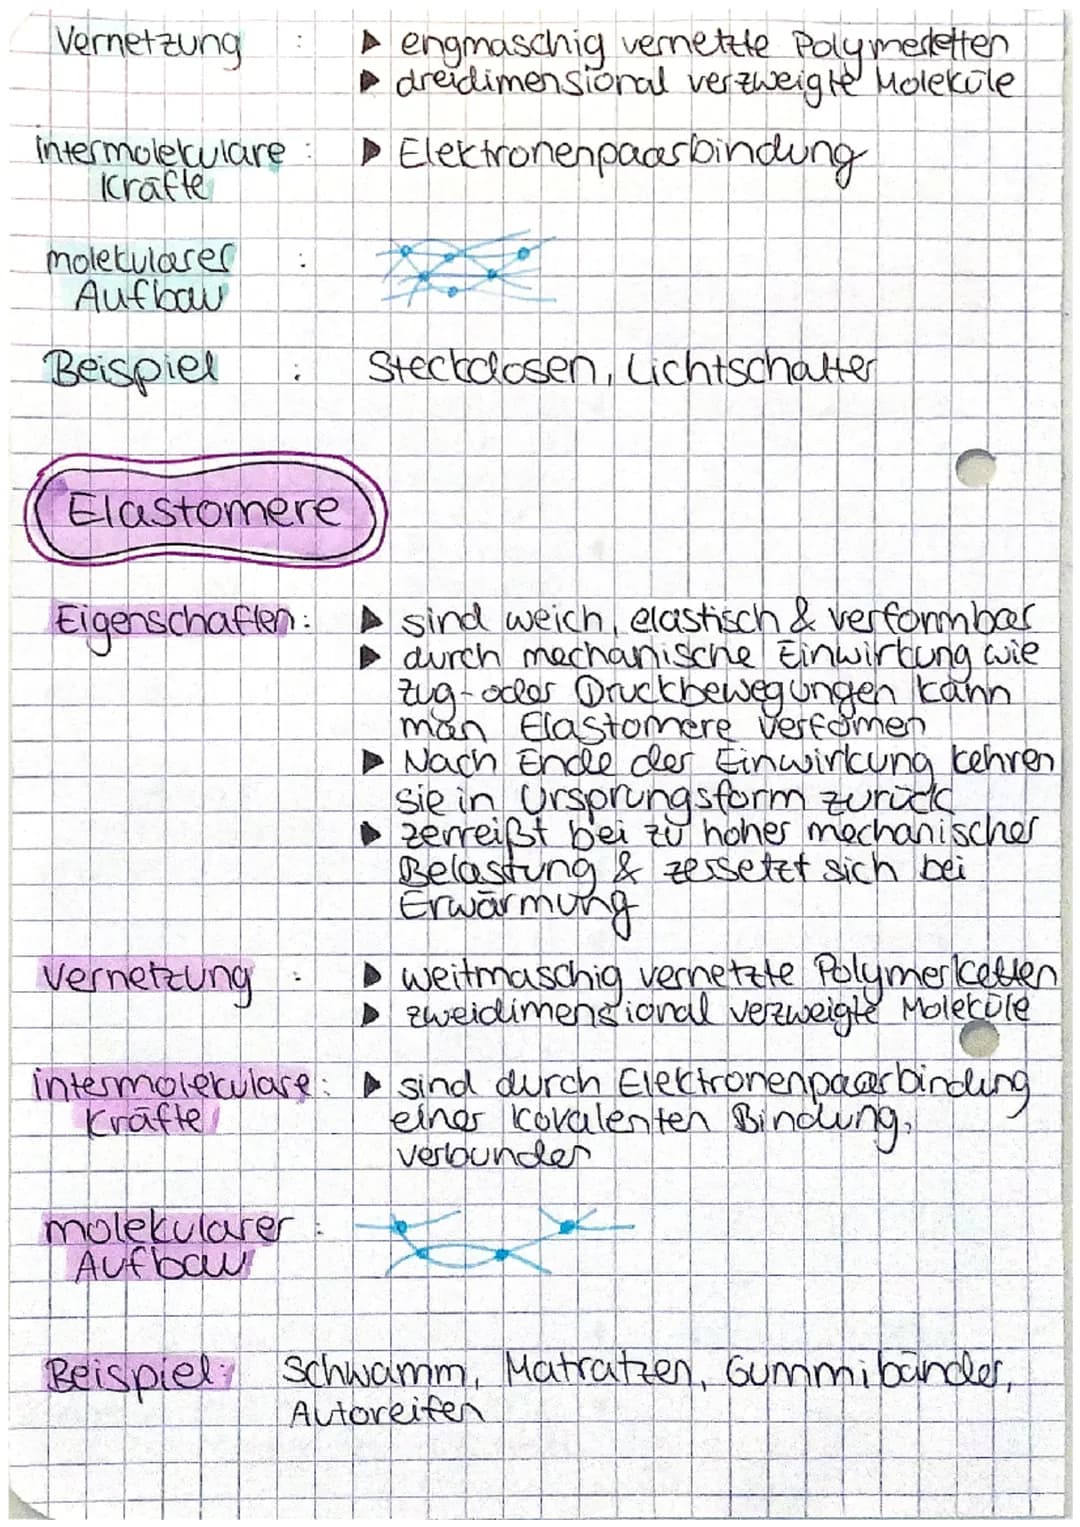 Vernetzung : ▶ engmaschig vernetzte Polymerketten
▶ dreidimensional verzweigte Moleküle
intermolekulare : ▶ Elektronenpaarbindung
Kräfte
molekularer :
Aufbau
Beispiel : Steckdosen, Lichtschalter
Elastomere
Eigenschaften: ▶ sind weich, elastisch & verformbar
▶ durch mechanische Einwirkung wie
Zug- oder Druckbewegungen kann
man Elastomere verformen
▶ Nach Ende der Einwirkung kehren
sie in Ursprungsform zurück
▶ zerreißt bei zu hoher mechanischer
Belastung & zersetzt sich bei
Erwärmung
Vernetzung : ▶ weitmaschig vernetzte Polymerketten
▶ zweidimensional verzweigte Moleküle
intermolekulare: ▶ sind durch Elektronenpaarbindung
Kräfte einer kovalenten Bindung,
verbunden
molekularer :
Aufbau
Beispiel: Schwamm, Matratzen, Gummibänder,
Autoreifen